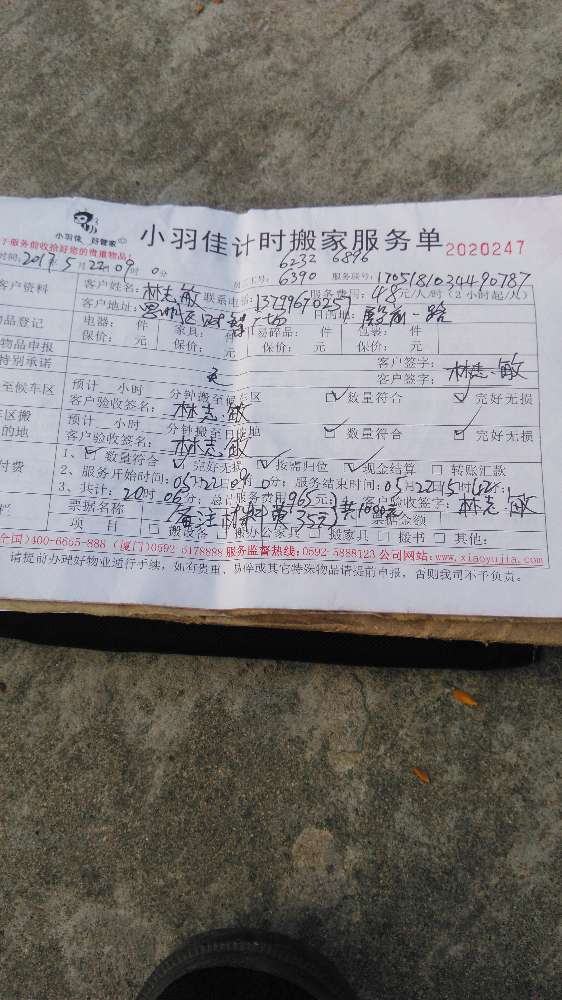 小羽佳 好管家
小羽佳计时搬家服务单 2020247
服务前收拾好您的贵重物品!
6232 6896
时间: 2017 5 22 09 时 0 分 工号: 6390 服务账号: 170518103449078​7
客户资料 客户姓名: 林志敏 联系电话: 13799670257 服务费用: 48元/人/时 (2小时起/人)
客户地址: 目的地: 殿前一路
品登记 电器: 件 家具: 件 易碎品: 件 包装: 件
物品申报 保价: 元 保价: 元 保价: 元
特别承诺 无 客户签字: 林志敏
客户签字:
至候车区 预计 小时 分钟搬至候车区 ☑ 数量符合 ☑ 完好无损
客户验收签名: 林志敏
区搬 预计 小时 分钟搬至目的地 ☑ 数量符合 ☑ 完好无损
的地 客户验收签名: 林志敏
付费 1、☑ 数量符合 ☑ 完好无损 ☑ 按需归位 ☑ 现金结算 □ 转账汇款
2、服务开始时间: 05月22日09时0分; 服务结束时间: 05月22日15时
3、共计: 20时06分; 总计服务费用965元; 客户验收签字: 林志敏
票据名称 备注材料费35元 共1000元 票据金额
项 目 □ 搬设备 □ 搬办公家具 □ 搬家具 □ 搬书 □ 其他:
全国)400-6655-888 (厦门)0592-5178888 服务监督热线:0592-5888123 公司网站:www.xiaoyujia.com
请提前办理好物业通行手续,如有贵重、易碎或其它特殊物品请提前申报,否则我司不予负责。